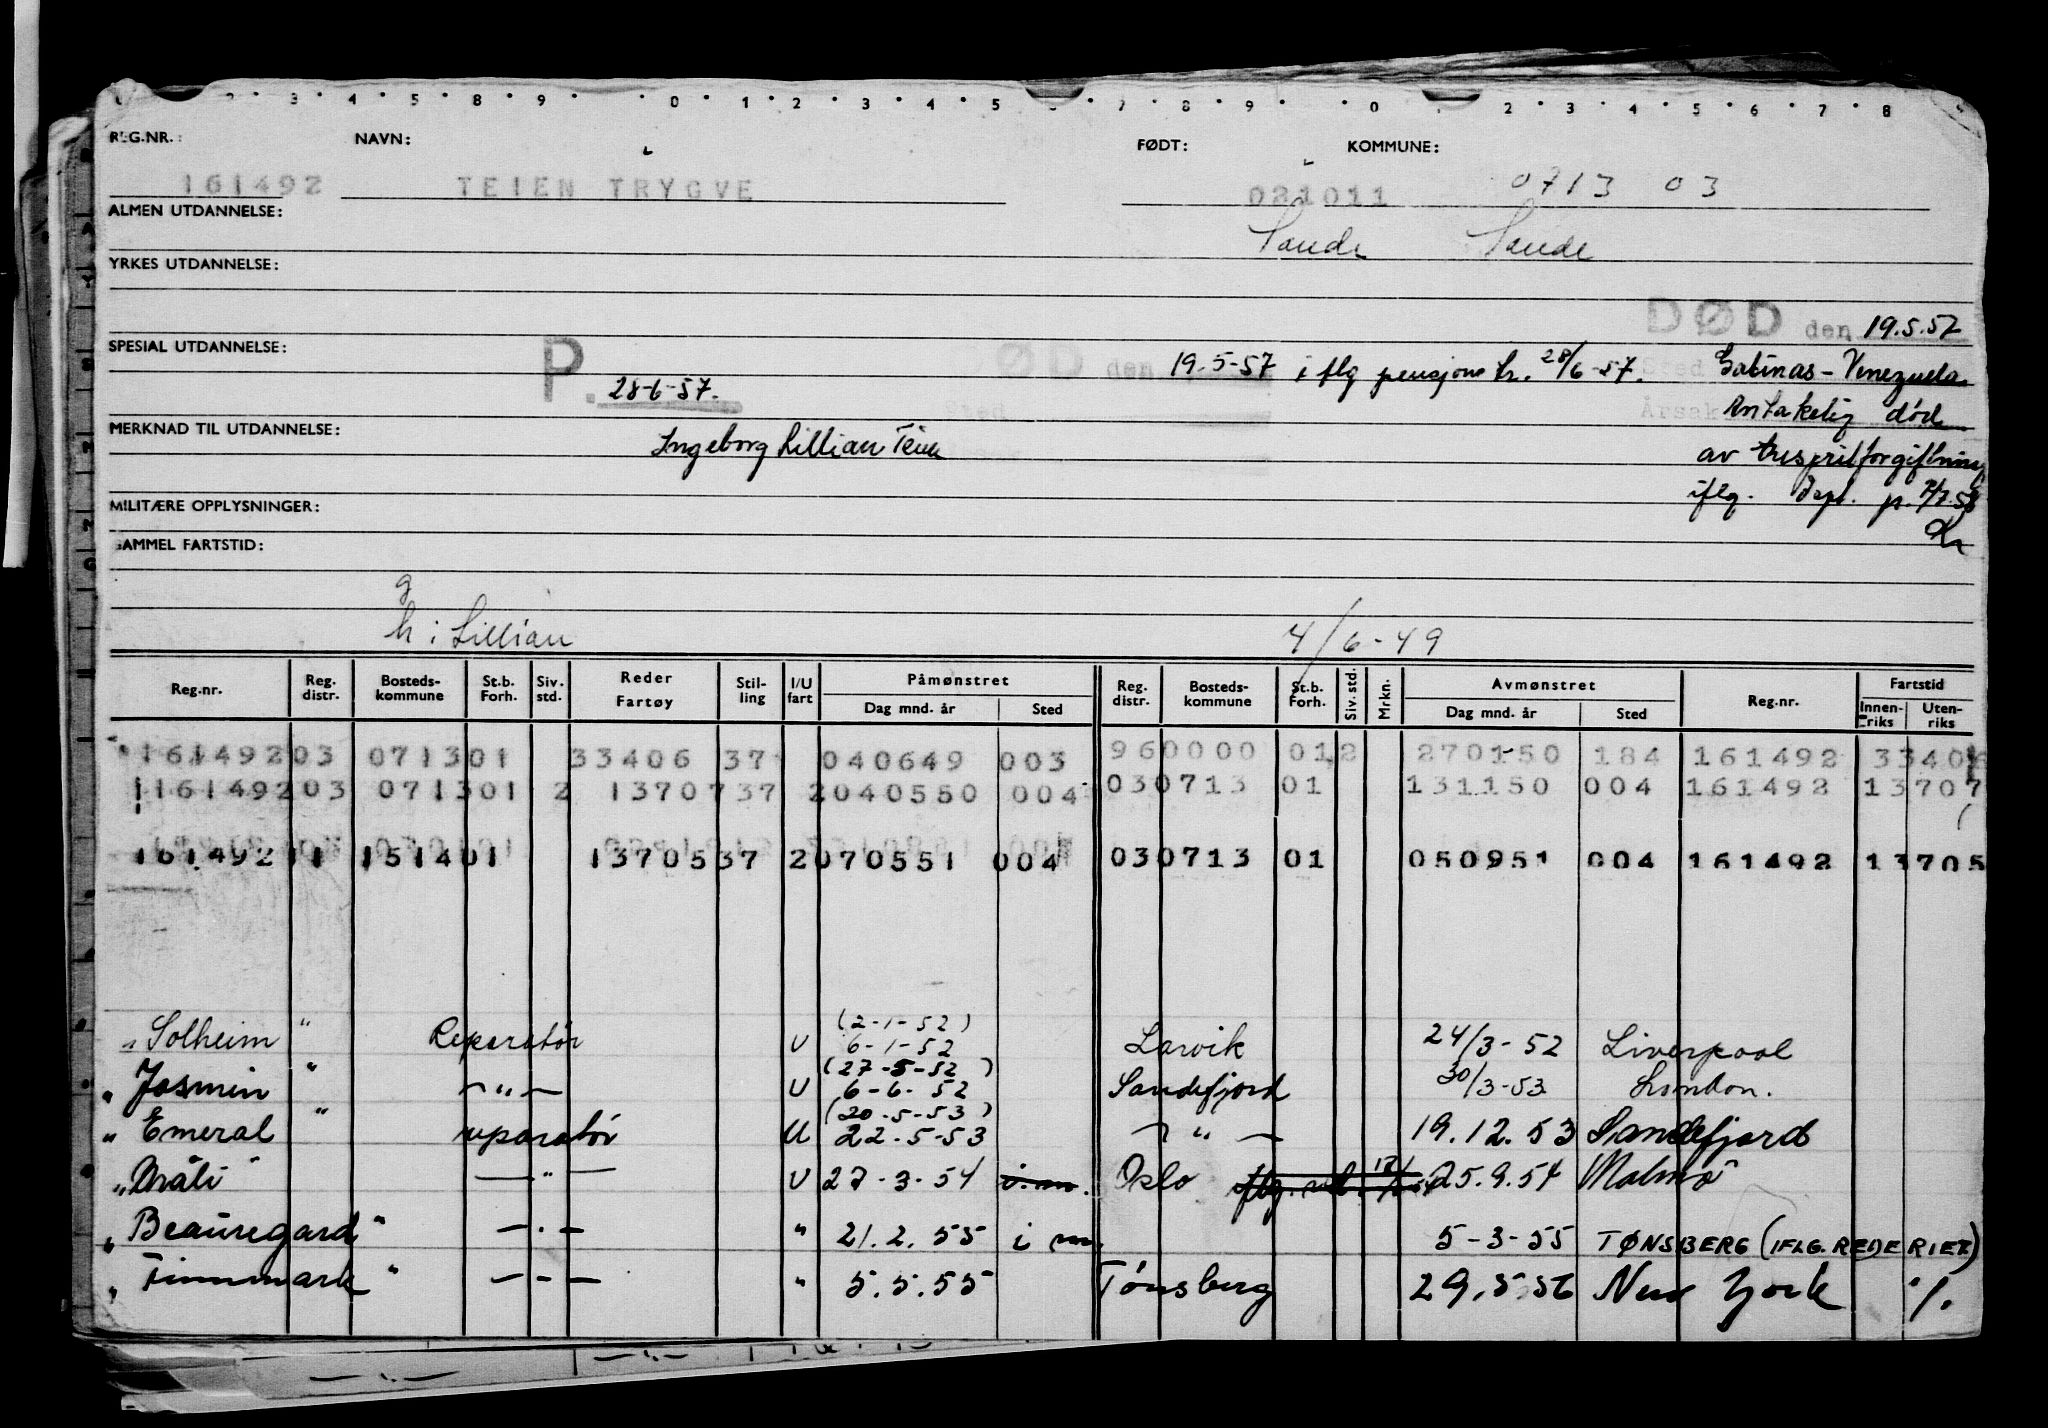 REG.NR.: NAVN: FØDT: KOMMUNE:
161492 TEIEN TRYGVE 021011 0713 03
ALMEN UTDANNELSE: Sande Sande
YRKES UTDANNELSE:
DØD den 19.5.57
SPESIAL UTDANNELSE: P. 28-6-57. DØD den 19.5-57 i flg pensjons tr. 28/6-57. Sted Gabinas - Venezuela
Sted Årsak Antakelig død
MERKNAD TIL UTDANNELSE: Ingeborg Lillian Teien av trespritforgiftning
iflg. p. 7/7.58
MILITÆRE OPPLYSNINGER:
GAMMEL FARTSTID:
g
h: Lillian 4/6-49
Reg.nr. Reg. distr. Bosteds-kommune St.b. Forh. Siv. std. Reder Fartøy Stil-ling I/U fart Påmønstret Dag mnd. år Sted Reg. distr. Bosteds-kommune St.b. Forh. Siv. std. Mrkn. Avmønstret Dag mnd. år Sted Reg.nr. Fartstid Innen-riks Uten-riks
161492 03 0713 01 33406 37 040649 003 96 0000 01 2 270150 184 161492 33406
161492 03 0713 01 2 13707 37 2 040550 004 03 0713 01 131150 004 161492 13707
161492 11 1514 01 13705 37 2 070551 004 03 0713 01 050951 004 161492 13705
(2-1-52)
" Solheim " Reparatør U 6-1-52 Larvik 24/3-52 Liverpool
(27-5-52)
" Jasmin " - " - U 6-6-52 Sandefjord 30/3-53 London.
(20-5-53)
" Emeral " reparatør U 22.5-53 - " - 19.12.53 Sandefjord
" Bråli " - " - U 27-3-54 i.m. Oslo 25.9.54 Malmö
" Beauregard " - " - " 21.2.55 i m. 5-3-55 TØNSBERG (IFLG. REDERIET)
" Finnmark " - " - " 5.5.55 Tønsberg 29.5.56 New York %.